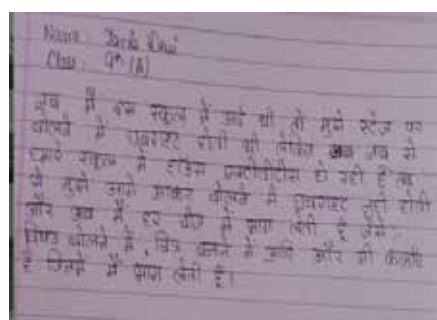 Name : Rani
Class : 9th (A)
जब मैं इस स्कूल में आई थी तो मुझे स्टेज पर
बोलने में घबराहट होती थी लेकिन जब से
हमारे स्कूल में हाउस एक्टीवीटीस हो रही हैं तब
से मुझे आगे आकर बोलने में घबराहट नहीं होती
और अब मैं हर चीज में भाग लेती हूँ जैसे :-
बोलने में, चित्र बनाने में आदि और भी
हैं जिनमें मैं भाग लेती हूँ।